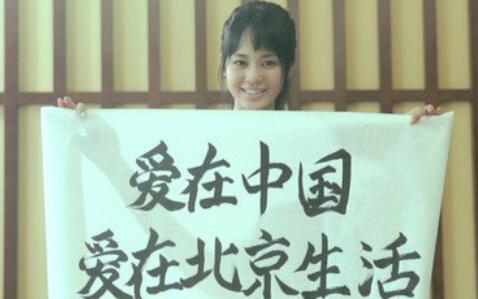 爱在中国
爱在北京生活